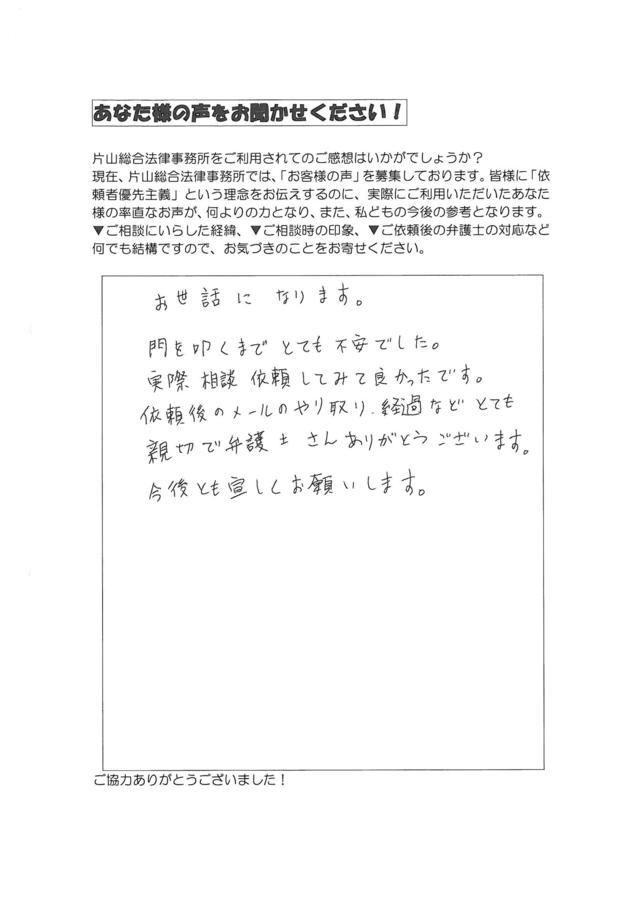 あなた様の声をお聞かせください！
片山総合法律事務所をご利用されてのご感想はいかがでしょうか？
現在、片山総合法律事務所では、「お客様の声」を募集しております。皆様に「依
頼者優先主義」という理念をお伝えするのに、実際にご利用いただいたあなた
様の率直なお声が、何よりの力となり、また、私どもの今後の参考となります。
▼ご相談にいらした経緯、▼ご相談時の印象、▼ご依頼後の弁護士の対応など
何でも結構ですので、お気づきのことをお寄せください。
お世話になります。
門を叩くまでとても不安でした。
実際相談依頼してみて良かったです。
依頼後のメールのやり取り、経過などとても
親切で弁護士さんありがとうございます。
今後とも宜しくお願いします。
ご協力ありがとうございました！